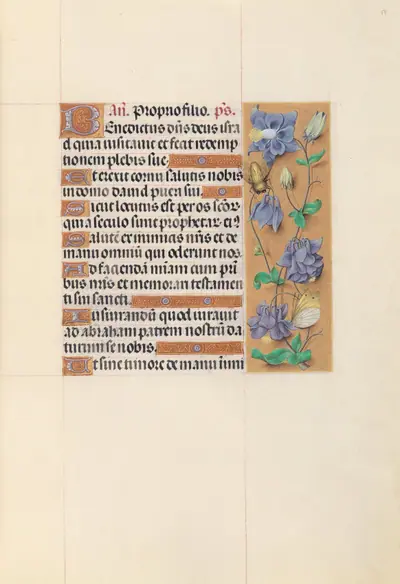 Añ. Proprio filio. ps.
Benedictus dñs deus isra
el quia visitavit et fecit redemp
tionem plebis sue
Et erexit cornu salutis nobis
in domo david pueri sui.
Sicut locutus est per os scõr
qui a seculo sunt prophetar ei9
Salutẽ ex inimicis nr̃is et de
manu omniũ qui oderunt nos
Ad faciendã mĩam cum pri
bus nr̃is et memorari testamen
ti sui sancti.
Iusiurandũ quod iuravit
ad abraham patrem nostrũ da
turum se nobis.
Ut sine timore de manu inimi